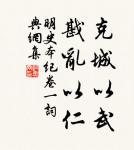 克城以武
戡亂以仁
明史本紀卷一詞
典網集